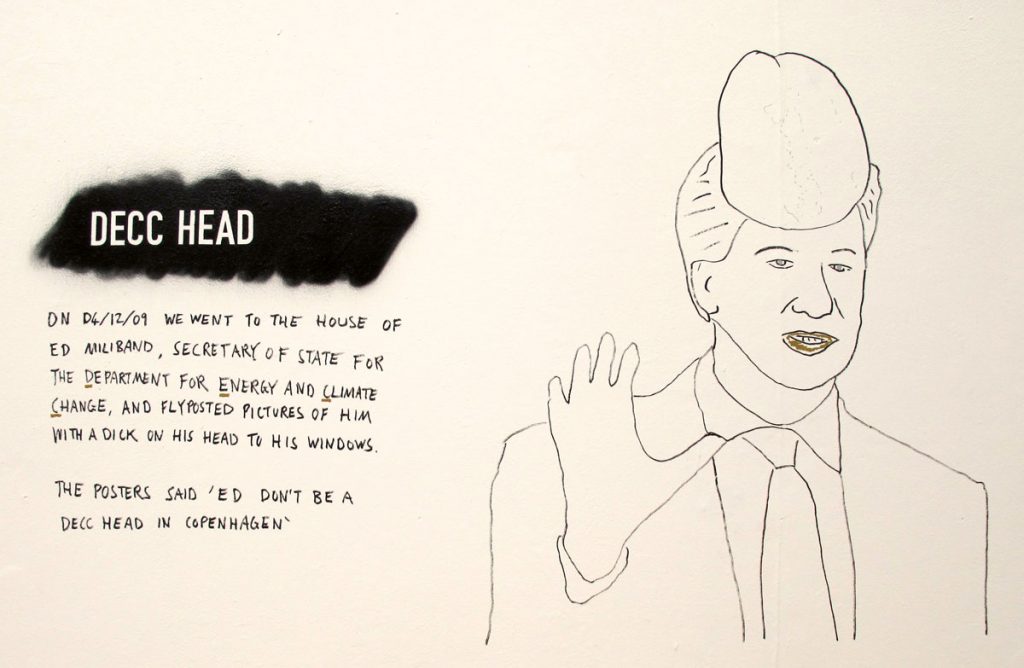 DECC HEAD
ON 04/12/09 WE WENT TO THE HOUSE OF
ED MILIBAND, SECRETARY OF STATE FOR
THE DEPARTMENT FOR ENERGY AND CLIMATE
CHANGE, AND FLYPOSTED PICTURES OF HIM
WITH A DICK ON HIS HEAD TO HIS WINDOWS.
THE POSTERS SAID 'ED DON'T BE A
DECC HEAD IN COPENHAGEN'